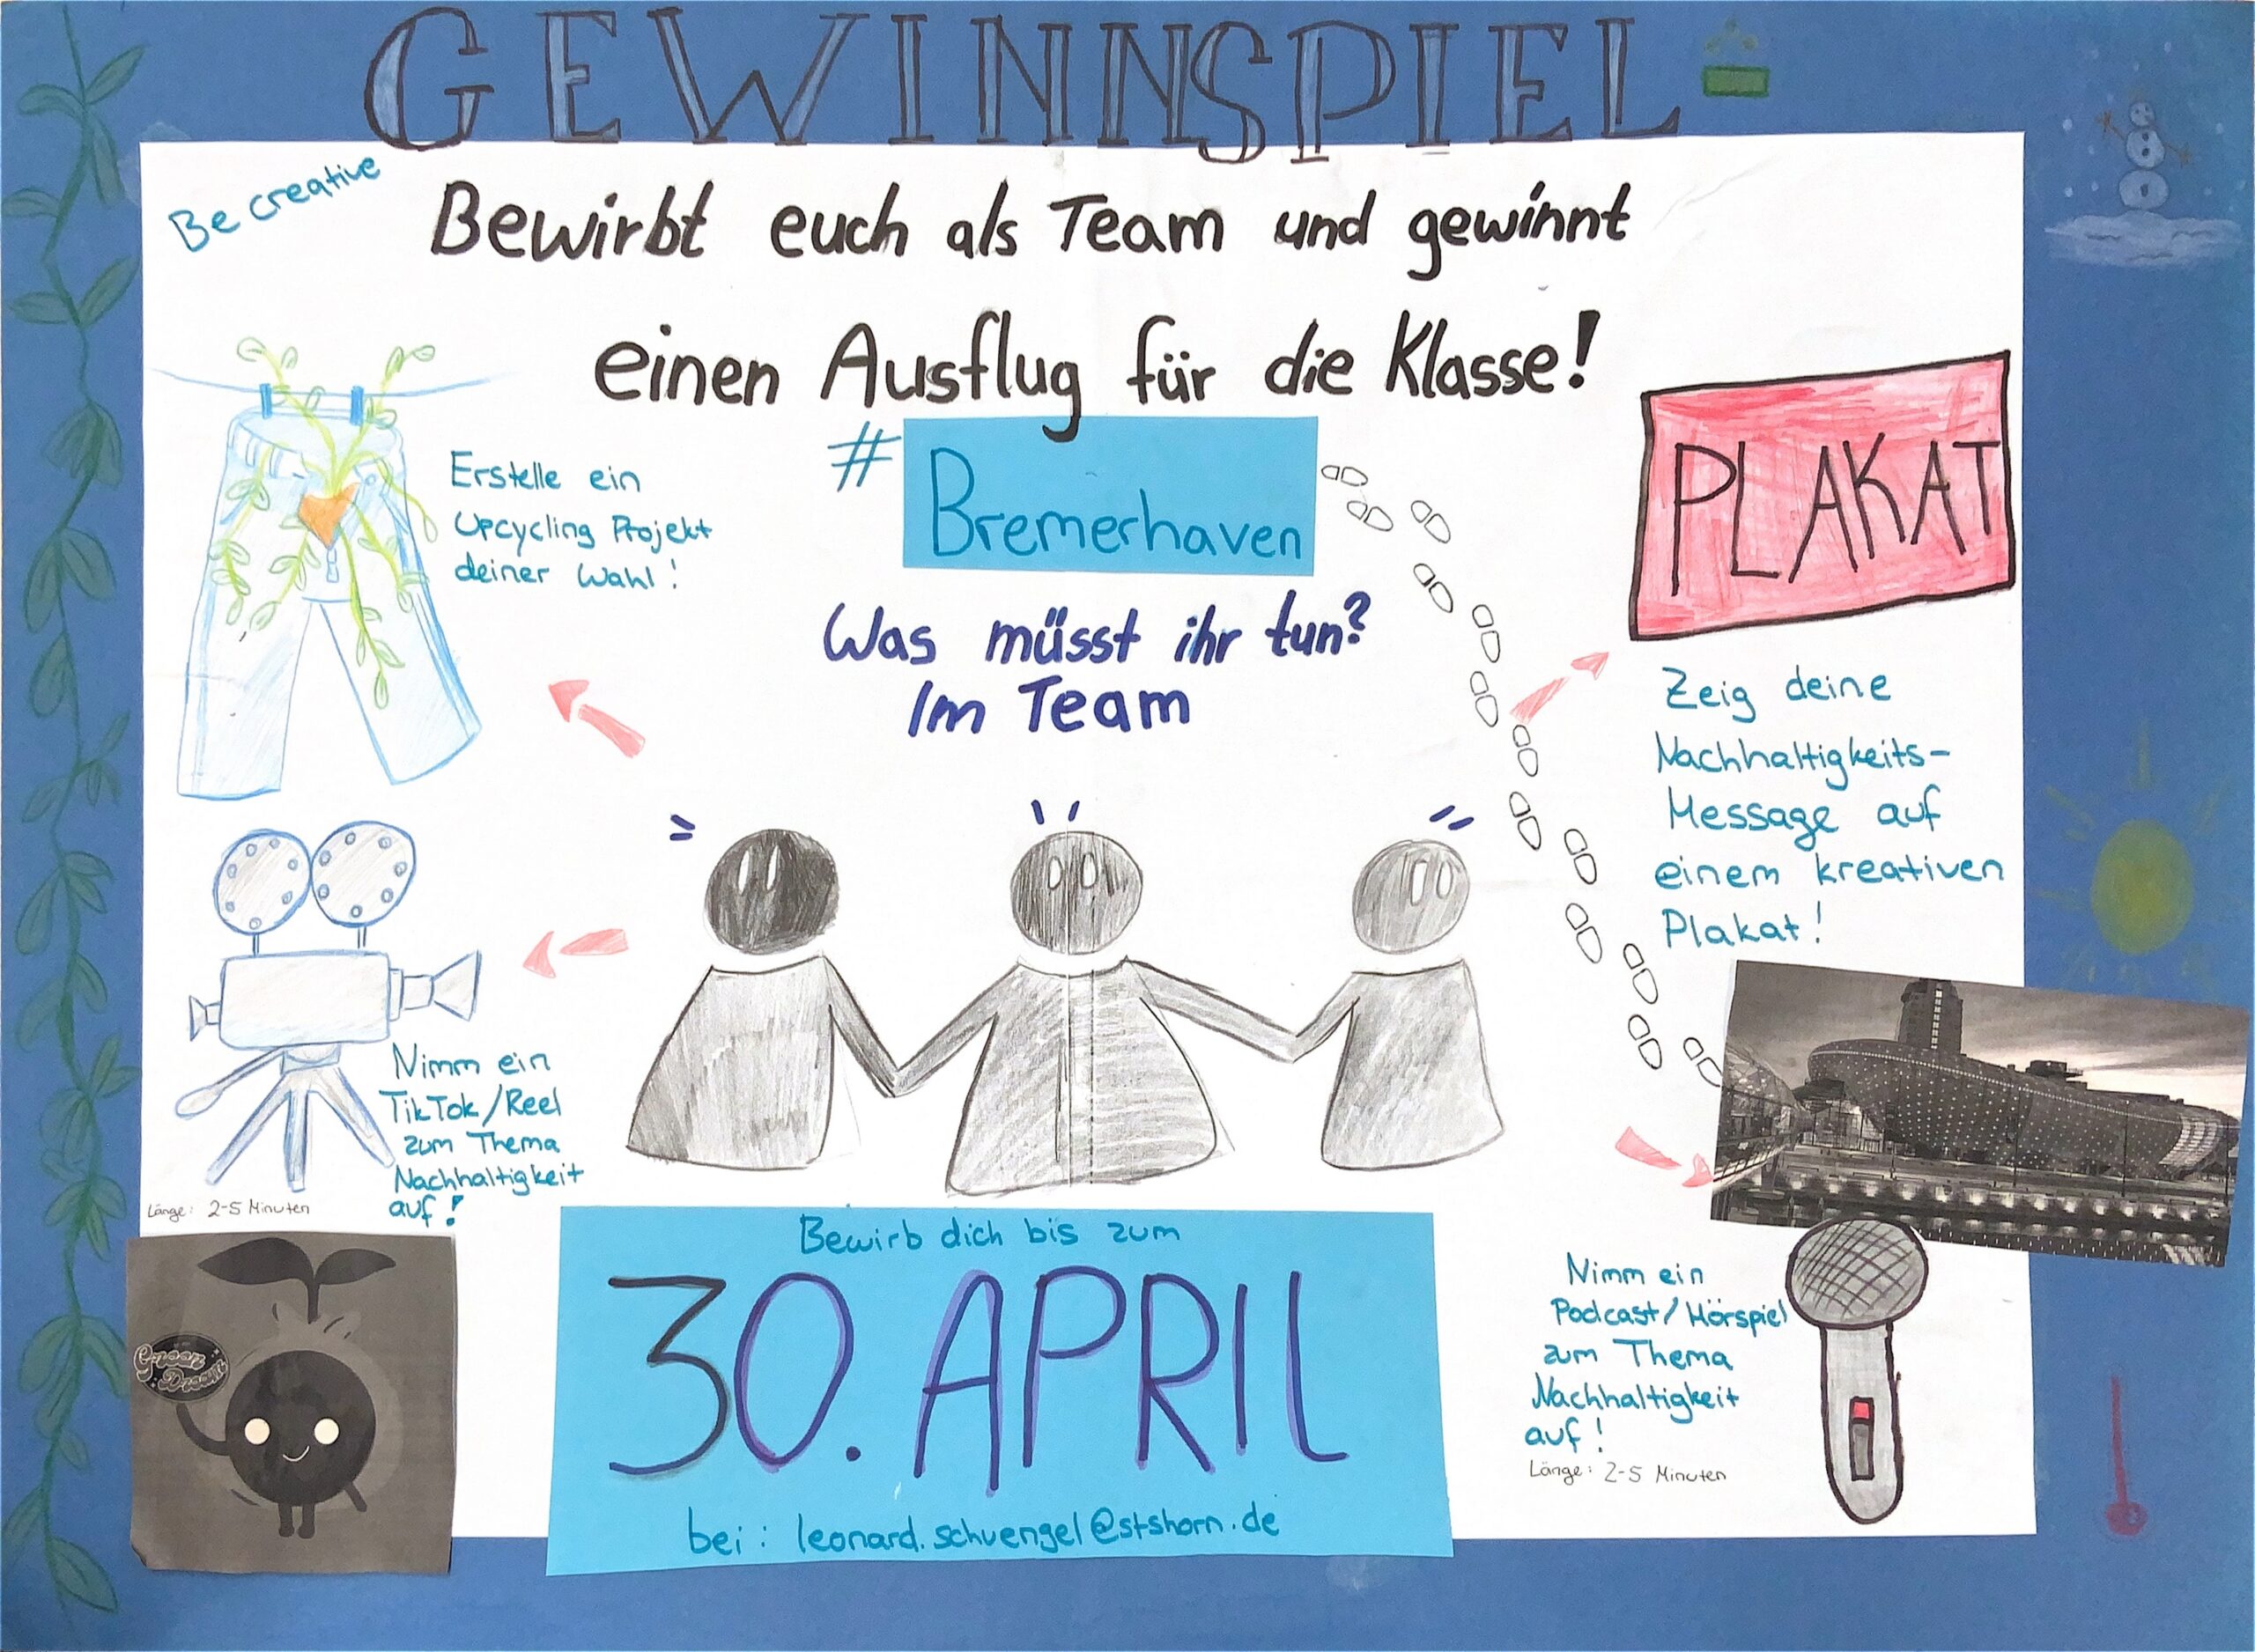 GEWINNSPIEL
Be creative
Bewirbt euch als Team und gewinnt
einen Ausflug für die Klasse!
# Bremerhaven
Was müsst ihr tun?
Im Team
Erstelle ein
Upcycling Projekt
deiner Wahl!
PLAKAT
Zeig deine
Nachhaltigkeits-
Message auf
einem kreativen
Plakat!
Nimm ein
TikTok/Reel
zum Thema
Nachhaltigkeit
auf!
Länge: 2-5 Minuten
Green
Dreams
Bewirb dich bis zum
30. APRIL
bei: leonard.schuengel@stshorn.de
Nimm ein
Podcast/Hörspiel
zum Thema
Nachhaltigkeit
auf!
Länge: 2-5 Minuten